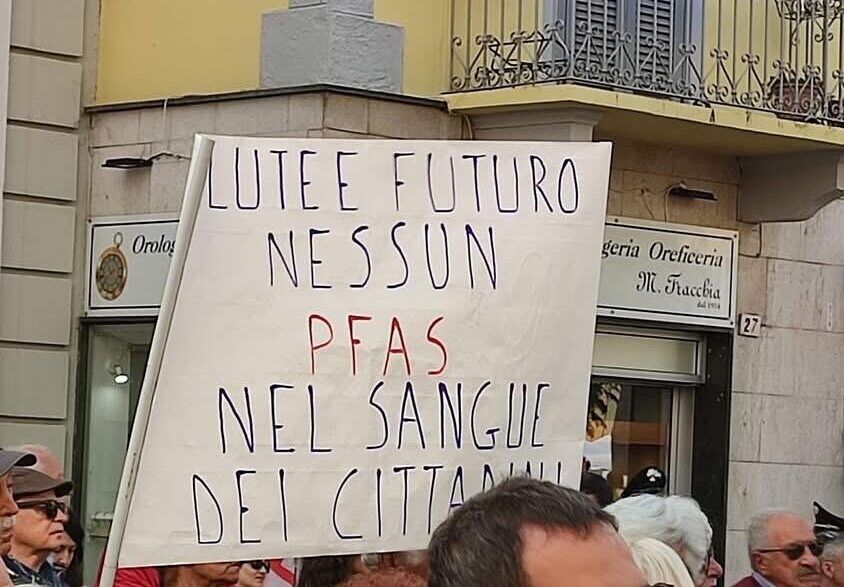 LUTE E FUTURO
NESSUN
PFAS
NEL SANGUE
DEI CITTADINI
Orolog
geria Oreficeria
M. Tracchia
dal 1914
27